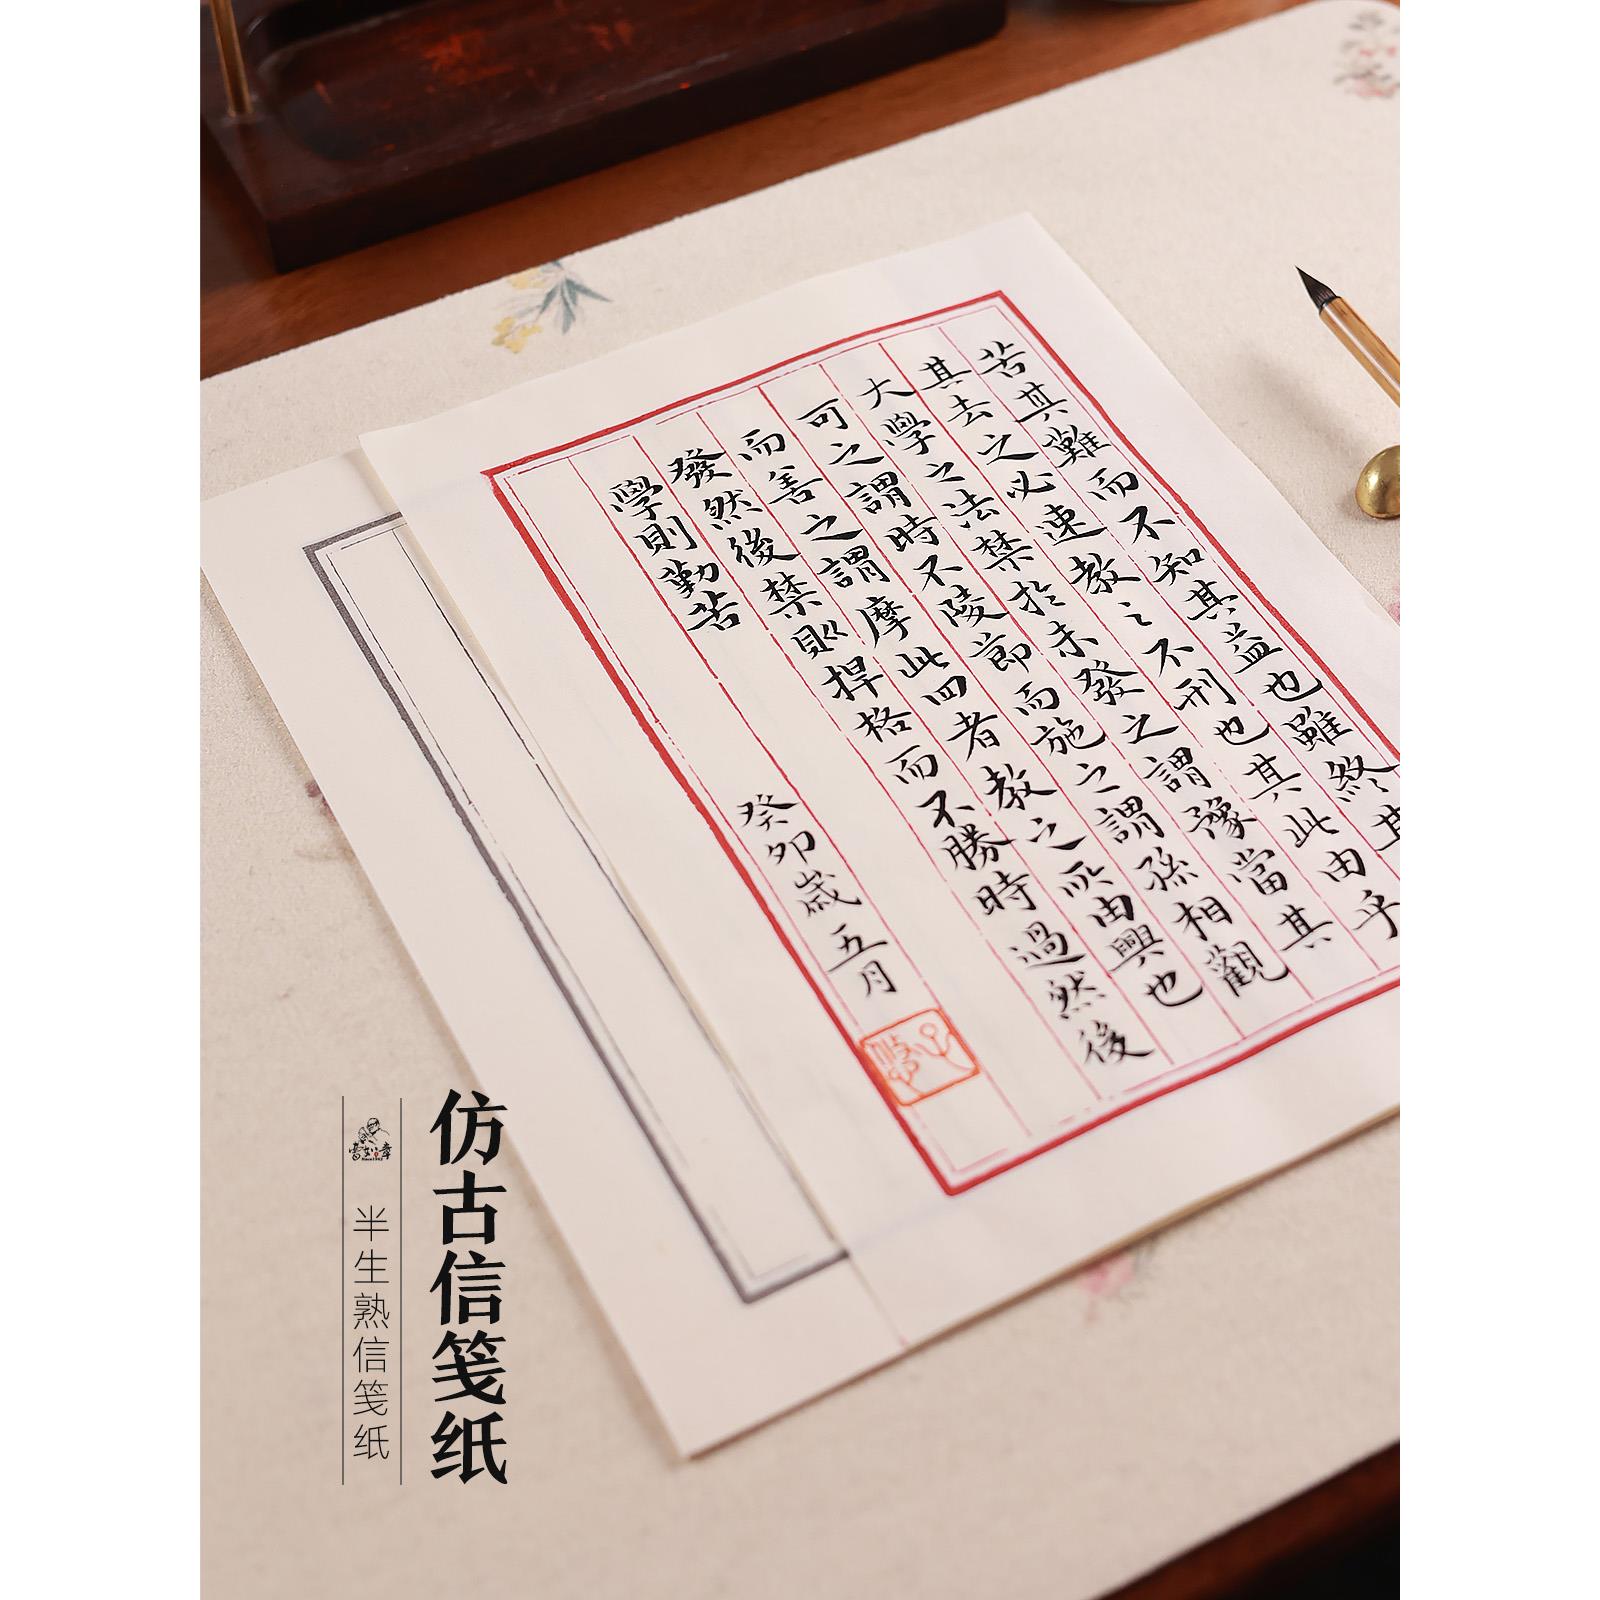 苦其難而不知其益也雖終其
其去之必速教之不刑也其此由乎
大學之法禁於未發之謂豫當其
可之謂時不陵節而施之謂孫相觀
而善之謂摩此四者教之所由興也
發然後禁則捍格而不勝時過然後
學則勤苦
癸卯歲五月
仿古信笺纸
半生熟信笺纸